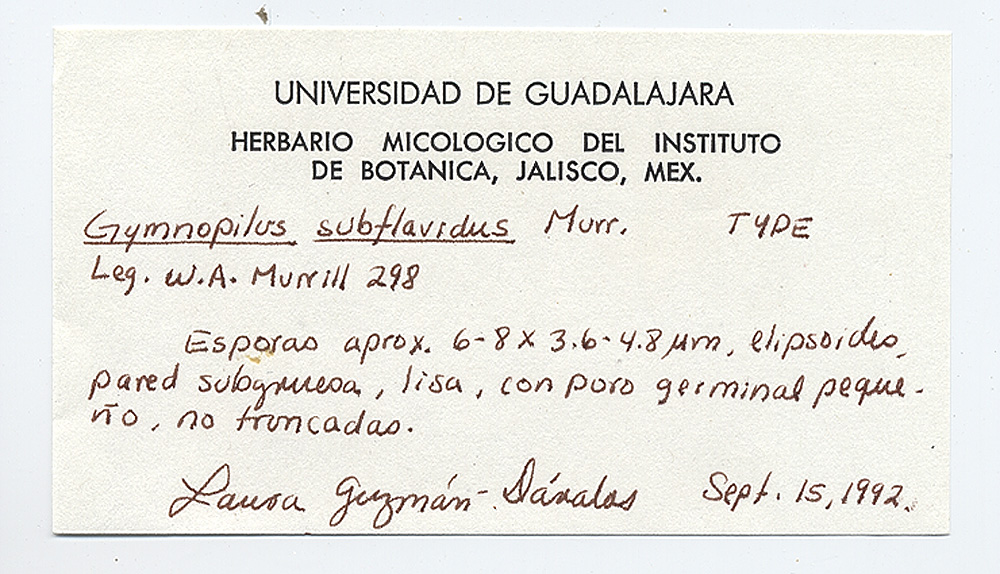 UNIVERSIDAD DE GUADALAJARA
HERBARIO MICOLOGICO DEL INSTITUTO
DE BOTANICA, JALISCO, MEX.
Gymnopilus subflavidus Murr. TYPE
Leg. W.A. Murrill 298
Esporas aprox. 6-8 x 3.6-4.8 µm, elipsoides,
pared subgruesa, lisa, con poro germinal peque-
ño, no truncadas.
Laura Guzmán-Dávalos Sept. 15, 1992.